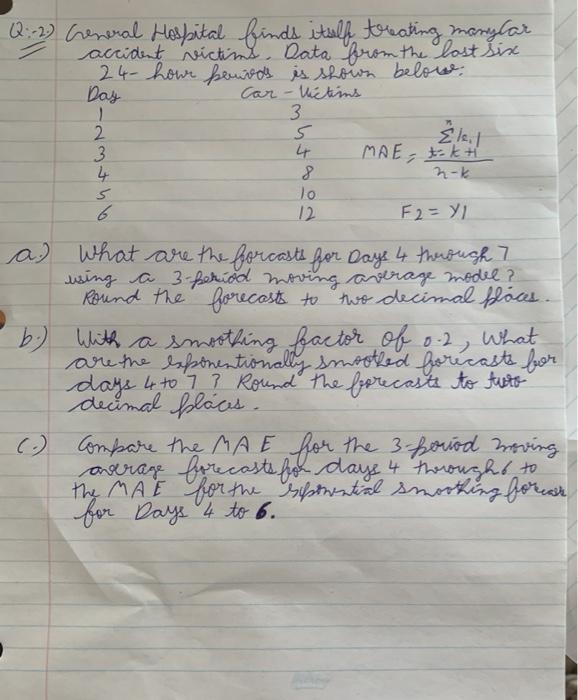 Q:-2) General Hospital finds itself treating many Car
accident victims. Data from the last six
24-hour periods is shown below:
Day Car-Victims
1 3
2 5
3 4
4 8
5 10
6 12
MAE = n Σ |ei| t=k+1 / n-k
F2 = Y1
a.) What are the forcasts for Days 4 through 7
using a 3-period moving average model?
Round the forecasts to two decimal places.
b.) With a smoothing factor of 0.2, what
are the exponentionally smoothed forecasts for
days 4 to 7? Round the forecasts to two
decimal places.
(c.) Compare the MAE for the 3-period moving
average forecasts for days 4 through 6 to
the MAE for the exponential smoothing forecast
for Days 4 to 6.